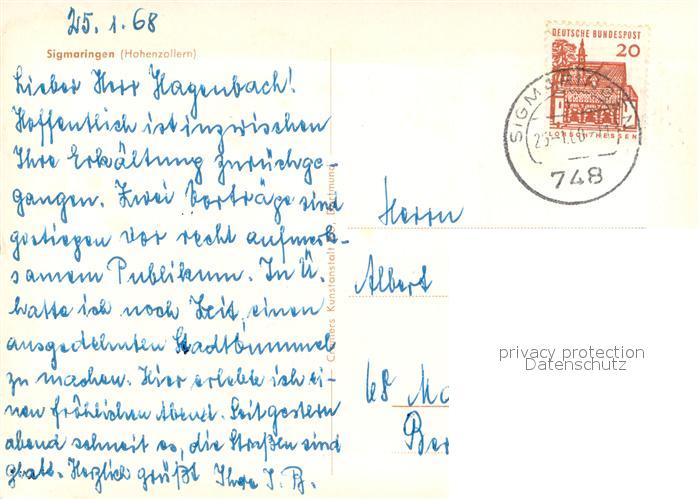 25.1.68
Sigmaringen (Hohenzollern)
Lieber Herr Hagenbach!
Hoffentlich ist inzwischen
Ihre Erkältung zurückge-
gangen. Zwei Vorträge sind
gestiegen vor recht aufmerk-
samem Publikum. In Ü.
hatte ich noch Zeit, einen
ausgedehnten Stadtbummel
zu machen. Hier erlebte ich ei-
nen fröhlichen Abend. Seit gestern
abend schneit es, die Straßen sind
glatt. Herzlich grüßt Ihre I. B.
Cramers Kunstanstalt Dortmund
DEUTSCHE BUNDESPOST
20
LORSCH/HESSEN
SIGMARINGEN
748
Herrn
Albert
68 Ma
Ber
privacy protection
Datenschutz